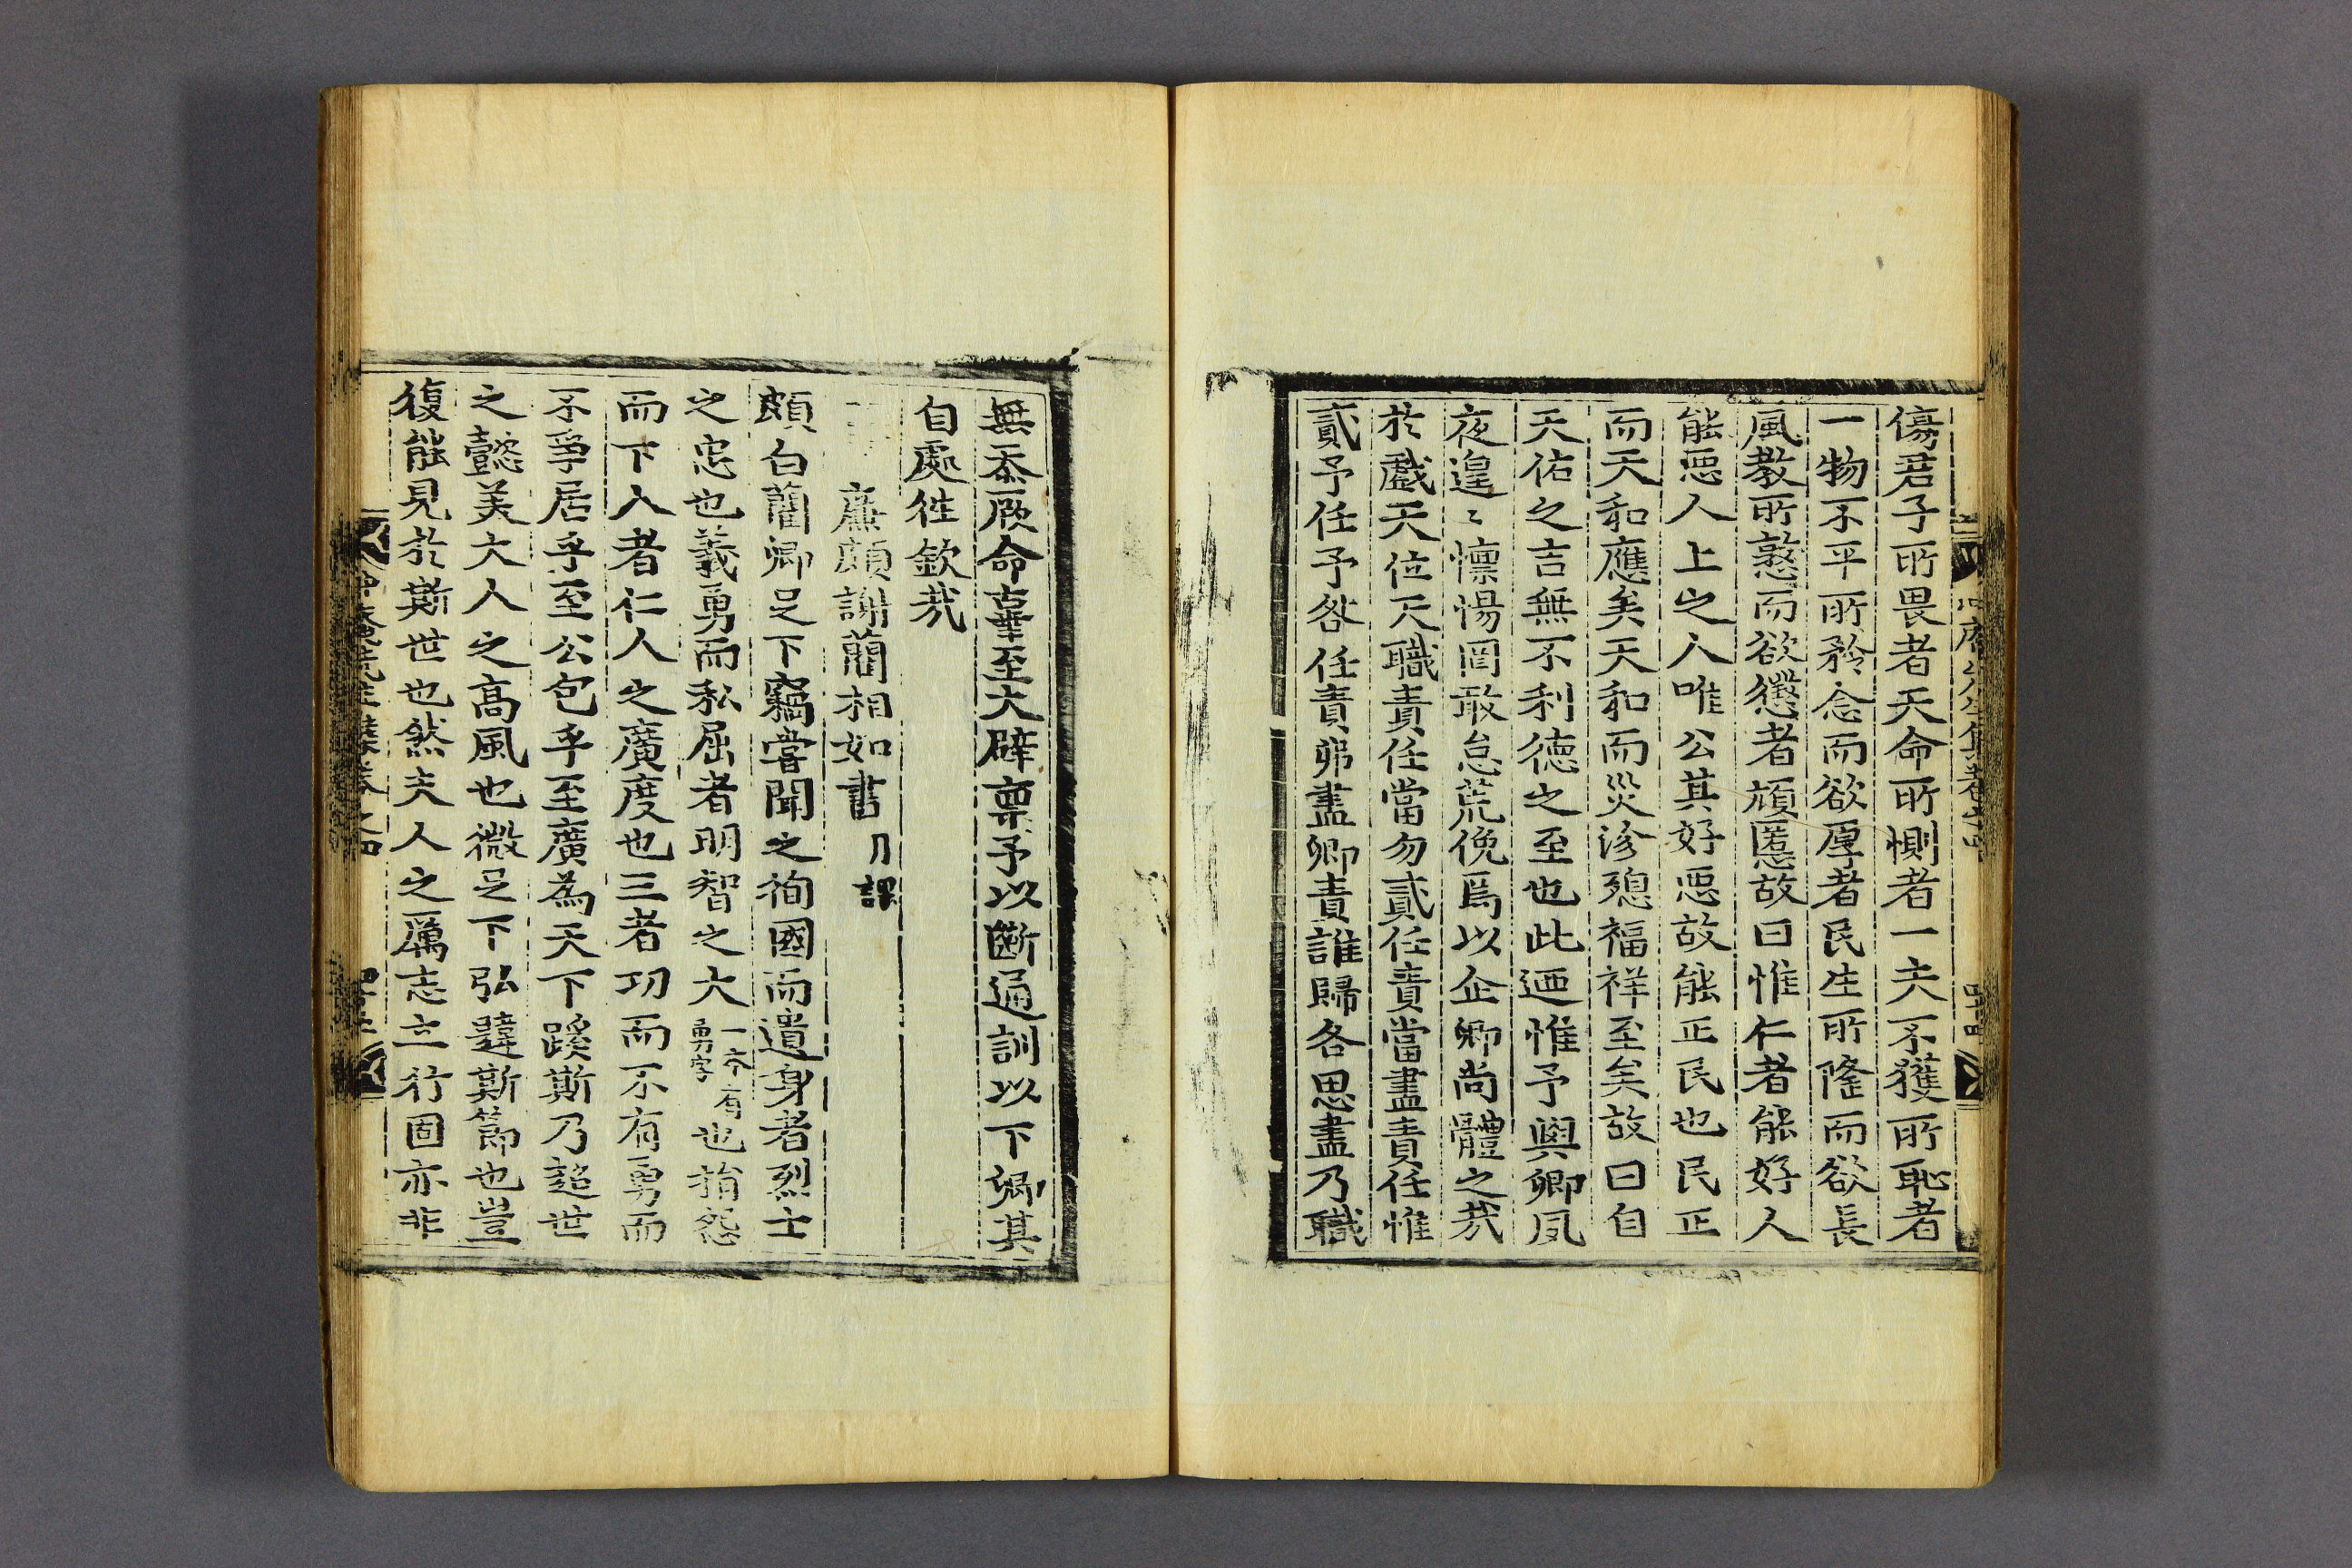 傷君子所畏者天命所惻者一夫不獲所恥者
一物不平所矜念而欲厚者民生所隆而欲長
風教所憝而欲懲者頑慝故曰惟仁者能好人
能惡人上之人唯公其好惡故能正民也民正
而天和應矣天和而災沴殄福祥至矣故曰自
天佑之吉無不利德之至也此迺惟予與卿夙
夜遑〻懍惕罔敢怠荒俛焉以企卿尚體之㢤
於戲天位天職責任當勿貳任責當盡責任惟
貳予任予咎任責弗盡卿責誰歸各思盡乃職
無忝厥命辜至大辟稟予以斷通訓以下卿其
自處徃欽㢤
廉頗謝藺相如書 月課
頗白藺卿足下竊嘗聞之徇國而遺身者烈士
之忠也義勇而私屈者明智之大一本有勇字也捐怨
而下人者仁人之廣度也三者功而不有勇而
不爭居乎至公包乎至廣為天下蹊斯乃超世
之懿美大人之高風也微足下弘韙斯節也豈
復能見於斯世也然夫人之厲志立行固亦非